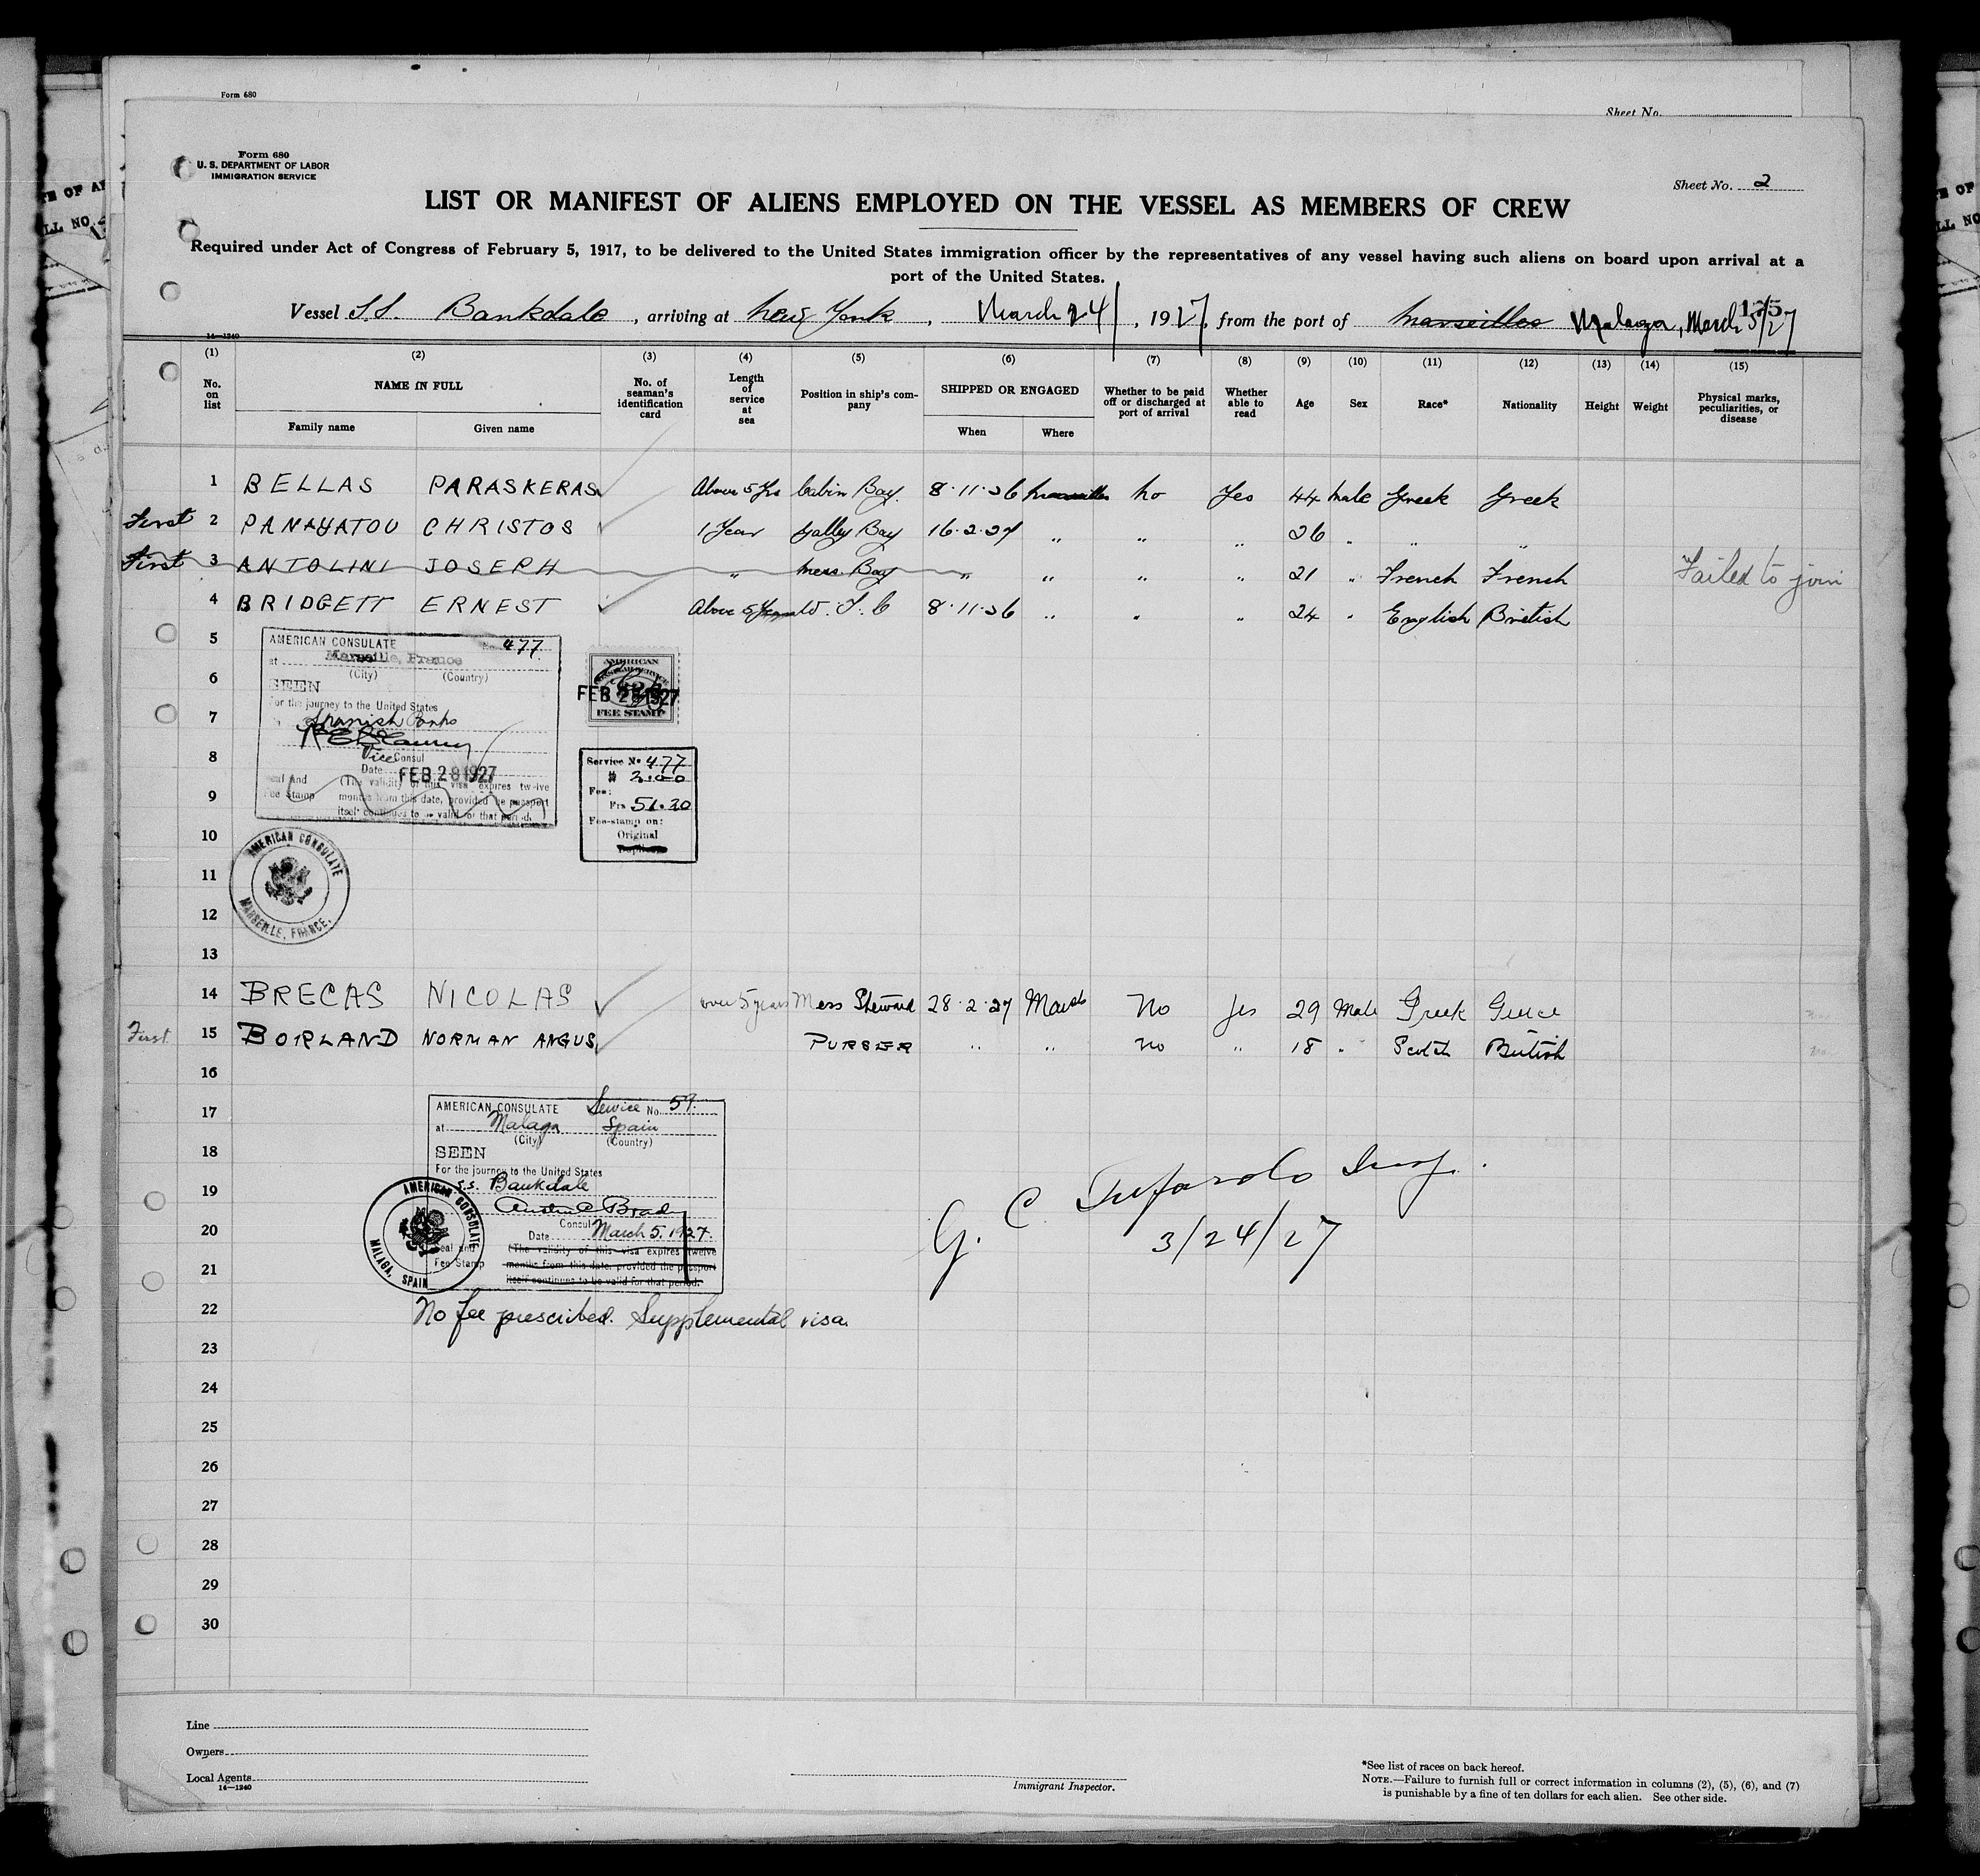 Form 680
Sheet No.
Form 680
U. S. DEPARTMENT OF LABOR
IMMIGRATION SERVICE
Sheet No. 2
LIST OR MANIFEST OF ALIENS EMPLOYED ON THE VESSEL AS MEMBERS OF CREW
Required under Act of Congress of February 5, 1917, to be delivered to the United States immigration officer by the representatives of any vessel having such aliens on board upon arrival at a
port of the United States.
Vessel S.S. Bankdale, arriving at New York, March 24, 1927, from the port of Marseilles Malaga, March 5/27
14—1240
(1) (2) (3) (4) (5) (6) (7) (8) (9) (10) (11) (12) (13) (14) (15)
No. on list
NAME IN FULL
Family name
Given name
No. of seaman's identification card
Length of service at sea
Position in ship's company
SHIPPED OR ENGAGED
When
Where
Whether to be paid off or discharged at port of arrival
Whether able to read
Age
Sex
Race*
Nationality
Height
Weight
Physical marks, peculiarities, or disease
1 BELLAS PARASKERAS Above 5 Yrs Cabin Boy. 8.11.26 Marseilles No Yes 44 Male Greek Greek
First 2 PANAYATOU CHRISTOS 1 Year Galley Boy 16.2.27 " " " 26 " " "
First 3 ANTOLINI JOSEPH " Mess Boy " " " " 21 " French French Failed to join
4 BRIDGETT ERNEST Above 5 Years W. T. 8.11.26 " " " 24 " English British
5
6
7
8
9
10
11
12
13
AMERICAN CONSULATE No. 477
at Marseille, France
(City) (Country)
SEEN
For the journey to the United States
Spanish Ports
Vice Consul
Date FEB 28 1927
Seal and Fee Stamp
(The validity of this visa expires twelve
months from this date, provided the passport
itself continues to be valid for that period.
AMERICAN
CONSULAR SERVICE
FEB 28 1927
FEE STAMP
Service No 477
$ 2.00
Fee:
Frs 51.20
Fee-stamp on:
Original
Duplicate
AMERICAN CONSULATE
MARSEILLE, FRANCE.
14 BRECAS NICOLAS over 5 years Mess Steward 28.2.27 Mars No Yes 29 Male Greek Greece
First 15 BORLAND NORMAN ANGUS PURSER " " No " 18 " Scotch British
16
17
18
19
20
21
22
AMERICAN CONSULATE Service No. 59.
at Malaga Spain
(City) (Country)
SEEN
For the journey to the United States
S.S. Bankdale
Brady
Consul
Date March 5. 1927.
Seal and Fee Stamp
(The validity of this visa expires twelve
months from this date, provided the passport
itself continues to be valid for that period.
AMERICAN CONSULATE
MALAGA, SPAIN
No fee prescribed. Supplemental visa.
G. C. Insp.
3/24/27
23
24
25
26
27
28
29
30
Line
Owners
Local Agents
14—1240
Immigrant Inspector.
*See list of races on back hereof.
NOTE.—Failure to furnish full or correct information in columns (2), (5), (6), and (7)
is punishable by a fine of ten dollars for each alien. See other side.